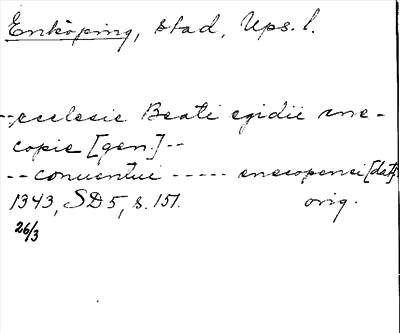 Enköping, stad, Ups. l.
--ecclesie Beati egidii ene-
copie [gen.]--
--conuentui ----- enecopensi [dat.]
1343, SD 5, s. 151. orig.
26/3